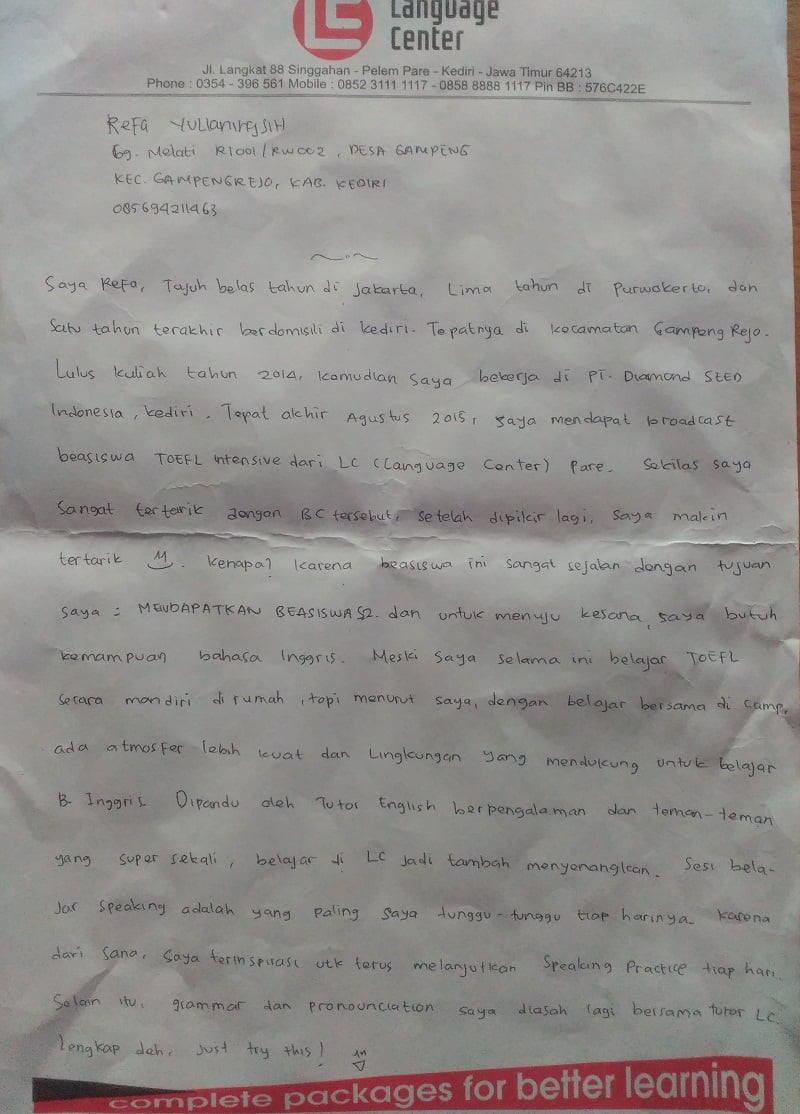 Language
LC Center
Jl. Langkat 88 Singgahan - Pelem Pare - Kediri - Jawa Timur 64213
Phone : 0354 - 396 561 Mobile : 0852 3111 1117 - 0858 8888 1117 Pin BB : 576C422E
Refa Yulianingsih
Gg. Melati RT001/RW002, DESA GAMPENG
KEC. GAMPENGREJO, KAB. KEDIRI
085694211463
Saya Refa, Tujuh belas tahun di Jakarta, Lima tahun di Purwokerto, dan
Satu tahun terakhir berdomisili di kediri. Tepatnya di kecamatan Gampeng Rejo.
Lulus kuliah tahun 2014, kemudian saya bekerja di PT. Diamond STED
Indonesia, kediri. Tepat akhir Agustus 2015, saya mendapat broadcast
beasiswa TOEFL intensive dari LC (Language Center) Pare. Sekilas saya
sangat tertarik dengan BC tersebut, setelah dipikir lagi, saya makin
tertarik. Kenapa? Karena beasiswa ini sangat sejalan dengan tujuan
saya : MENDAPATKAN BEASISWA S2. dan untuk menuju kesana, saya butuh
kemampuan bahasa Inggris. Meski saya selama ini belajar TOEFL
secara mandiri di rumah, tapi menurut saya, dengan belajar bersama di camp,
ada atmosfer lebih kuat dan lingkungan yang mendukung untuk belajar
B. Inggris. Dipandu oleh Tutor English berpengalaman dan teman-teman
yang super sekali, belajar di LC jadi tambah menyenangkan. Sesi bela-
jar speaking adalah yang paling saya tunggu-tunggu tiap harinya. Karena
dari sana, saya terinspirasi utk terus melanjutkan Speaking Practice tiap hari.
Selain itu, grammar dan pronounciation saya diasah lagi bersama tutor LC.
Lengkap deh, just try this!
complete packages for better learning